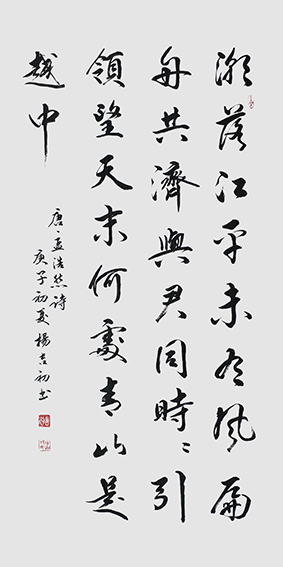 潮落江平未有風扁
舟共濟與君同時〻引
領望天末何處青山是
越中
唐·孟浩然詩
庚子初夏楊吉初书